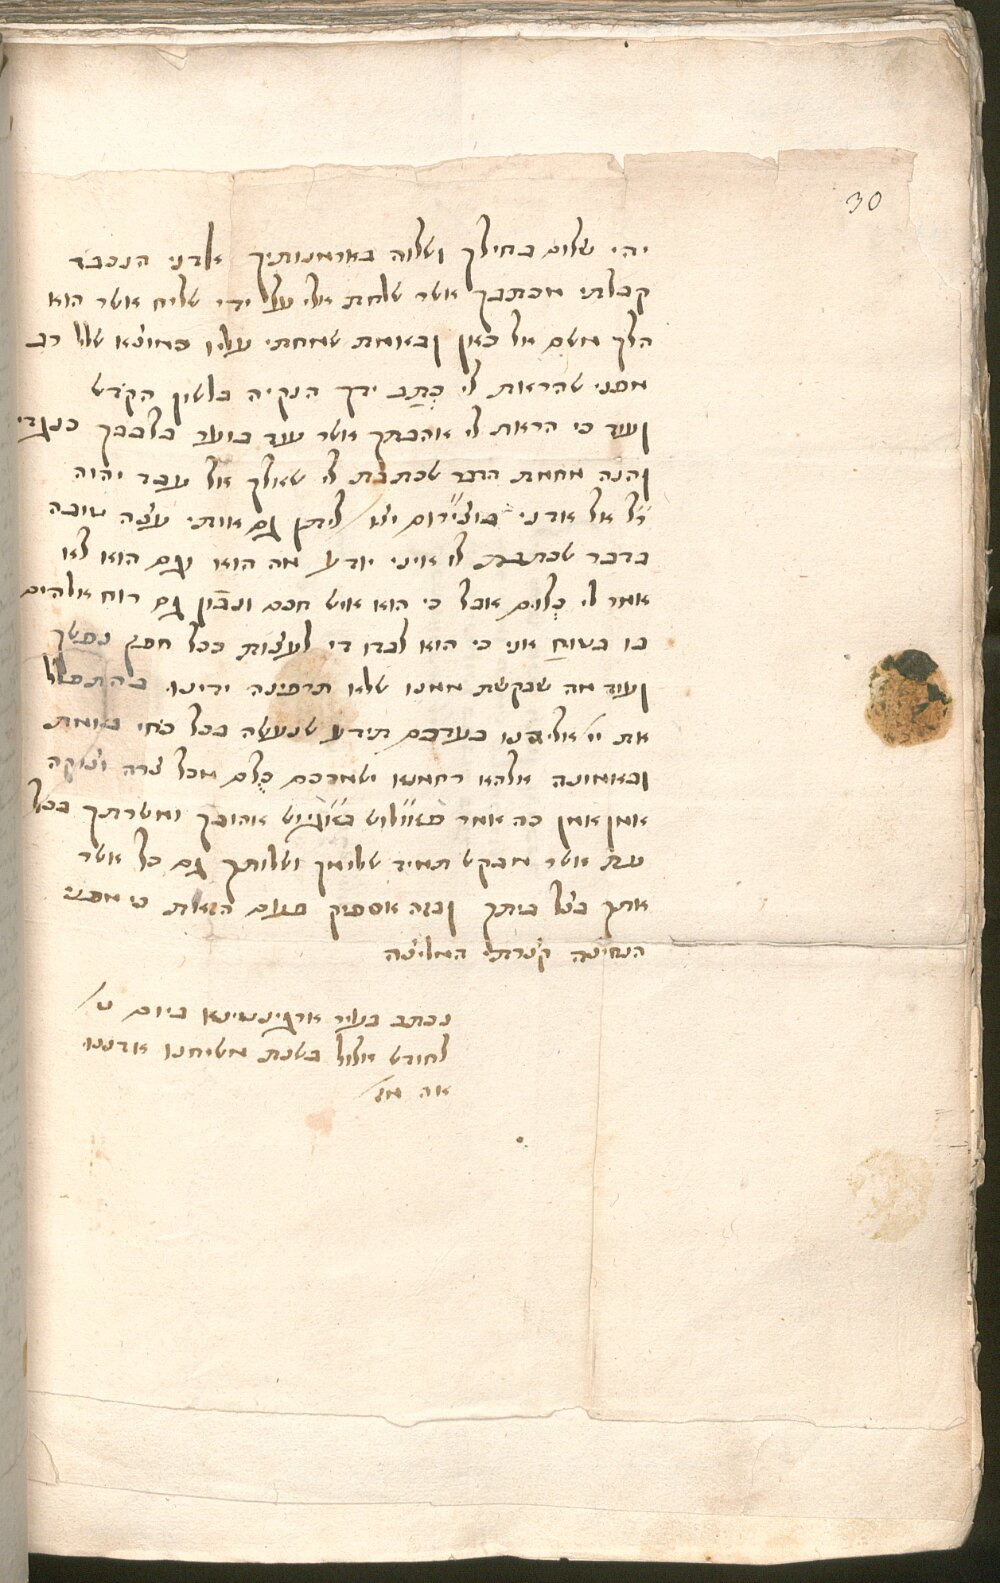 30
יהי שלום בחילך ושלוה בארמנותיך אדני הנכבד
קבלתי מכתבך אשר שלחת אלי על ידי שליח אשר הוא
הלך משם אל כאן ובאמת שמחתי עליו כמוצא שלל רב
מפני שהראת לי כְּתַב ידך הנקיה בלשון הקדש
ועוד כי הראת לי אהבתך אשר עוד בוער בלבבך כנגדי
והנה מחמת הדבר שכתבת לי שאלך אל עבד יהוה
ר״ל אל אדני ליתן גם אותי עצה טובה
בדבר שכתבת לי איני יודע מה הוא וגם הוא לא
אמר לי כְּלוּם אבל כי הוא איש חכם ונבון גם רוח אלהים
בו בטוח אני כי הוא לבדו די לעצות ככל חפץ נפשך
ועוד מה שבקשת ממנו שלא תרפינה ידינו בהתפלל
את יי׳ אלהינו בעדכם תידע שנעשה בכל כחי באמת
ובאמונה אלהא רחמנא ישמרכם כֻּלם מכל צרה וצוקה
אמן אמן כה אמר אהובך ומשרתך בכל
עת אשר מבקש תמיד שלומך ושלותך גם כל אשר
אתך בצל ביתך ובזה אספיק פעם הזאת כי מפני
הנחיצה קצרתי המליצה
נכתב בעיר ארגינטינא ביום
לחודש אלול בשנת משיחנו אדננו